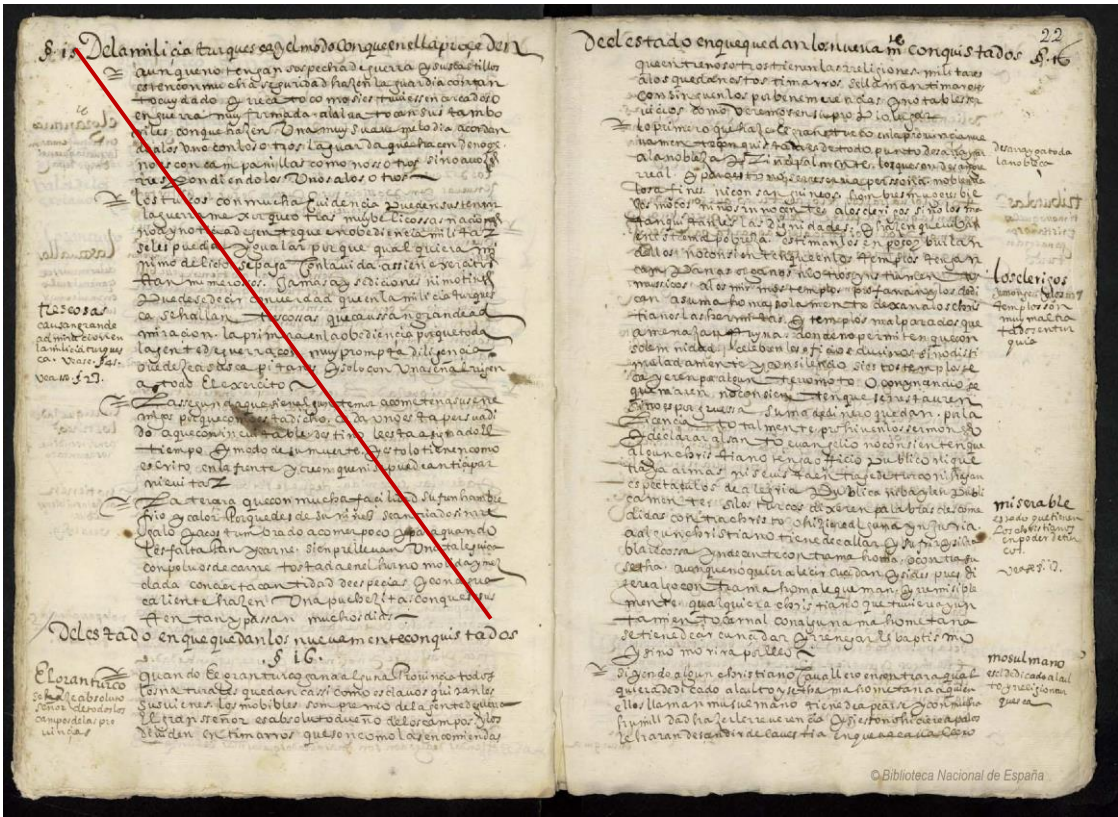 §. 15 Dela milicia turquesca y el modo conque en ella proceden
aunque no tengan sospecha de guerra y sus castillos
esten con mucha seguridad hazen la guardia con tan
to cuydado y recato como si estuuiessen cercados o
en guerra muy firmada. al alua tocan sus tambo
riles con que hazen Una muy suaue melodia acordan
dealos Unos con los otros. la guarda que hazen de noche
no es con campanillas como nosotros sino a uozes
respondiendo los Unos a los otros
los turcos con mucha Euidencia Pueden sustentar
la guerra mexor que otras muy belicossas naciones
no ay notic a de jente que en obediencia militar
seles pueda ygualar porque qual quiera mi
nimo delicto se paga con la vida. assi en exercitos
tan numerosos. Jamas ay sediciones ni motines
Puedese decir con verdad que en la milicia turques
ca se hallan tres cossas que caussan grande ad
miracion. la primera en la obediencia porque toda
la jente de guerra con muy prompta diligencia
obedeze a su capitan. y solo con Una seña se rijen
a todo El exercito
La segunda que sin algun temor acometen a sus ene
migos porque como esta dicho. cada uno esta persuadi
do a que con ineuitable destino le esta asignado el
tiempo y modo de su muerte. y esto lo tienen como
escrito en la frente y creen que ni se puede antiçipar
ni euitar
La terçera que con mucha facilidad sufren hambre
frio y calor Porque desde su niñez se an criado sin re
galo y acostumbrado a comer poco y para quando
les falta Pan y carne. siempre lleuan Una taleguica
con poluos de carne tostada en el horno molida y mez
clada con cierta cantidad de especias. y con agua
caliente hazen Una puchezita. con que se sus
tentan y passan muchos dias
Del estado en que quedan los nueuamente conquistados
§ 16.
quando El gran turco gana alguna Prouincia todos
los naturales quedan cassi como esclauos quitanles
sus vienes. los mobibles son premio de la jente de guerra
El gran señor es absoluto dueño de los campos y los
diuiden en timarros que son como las encomiendas
tres cosas
causan grande
admiracion en
la milicia turques
ca. vease. § 45.
vease. § 27.
El gran turco
se haze absoluto
señor de todos los
campos de las pro
uincias
22
Del estado en que quedan los nueuamte conquistados §. 16
que entre nosotros tienen las religiones. militares
a los que dan estos timarros. se llaman timarotes
Consiguenlos por benemerencias y notables ser
uicios como veremos en su propio lugar
lo primero que haze el gran turco en la prouincia nue
uamente conquistada es de todo punto desarraygar
a la nobleza y Principalmente. los que son de sangre
real. y para esto no reserua persona. no bienda
los mocos ni ños inocentes a los clerigos si no los ma
tan quitanles las dignidades. y hazen que uiban
en estrema pobreza. estimanlos en poco. burlan
dellos no consienten que en los templos tengan
campanas organos ni otros instrumentos
mussicos. a los mismos templos. profanan y los dedi
can a su mahoma y solamente dexan a los chris
tianos las hermitas. y templos mal parados que
amenazan Ruyna. donde no permiten que con
solemnidad celebren los oficios diuinos sino disi
muladamente y con silencio. si estos templos se
cayeren por algun terremoto. O por incendio se
quemaren. no consienten que se restauren
sino es por gruessa suma de dinero que dan. por la
licencia totalmente. prohiuen los sermones
y declarar el santo euangelio no consienten que
algun christiano tenga oficio Publico ni que
trayga armas. ni se uista en traje de turco ni hagan
espectaculos de alegria Publica. ni bayles Publi
camente. si los turcos dixeren palabras descome
didas contra christo o hizieren alguna ynjuria
a algun christiano tiene de callar y sufrir. si ha
bla cossa yndecente contra mahoma. o contra su
setha. aunque no quiera le circuncidan y si despues di
xere algo contra mahoma le queman. yrremisible
mente. qualquiera christiano que tuuiere ayun
tamiento carnal con alguna mahometana
se tiene de circuncidar y rrenegar el baptismo
y sino morira por ello
Si yendo algun christiano a cauallo encontrara qual
quiera dedicado al culto y setha mahometana a quien
ellos llaman musulmano tiene de apearse y con mucha
humildad hazerle reuerencia y si esto no hiciere a palos
le haran descendir de la vestia
desarrayga toda
la nobleza
los clerigos
y monjes y los
templos son
muy mal tra
tados en tur
quia
miserable
estado que tienen
Los christianos
en poder de tur
cos.
vease. §. 17.
mosulmano
es el dedicado al cul
to y religion tur
quesca
© Biblioteca Nacional de España